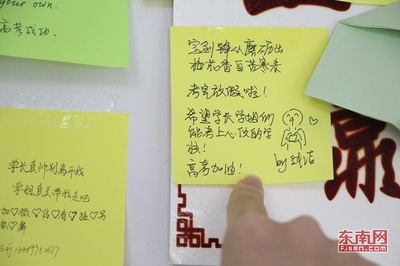 your own.
高考成功.
宝剑锋从磨砺出
梅花香自苦寒来
考完放假啦！
希望学长学姐们
能考上心仪的学
校！
高考加油！
by
学长真帅别离
学姐真美带我走吧
加♡微♡信♡
东南网
FJSEN.COM